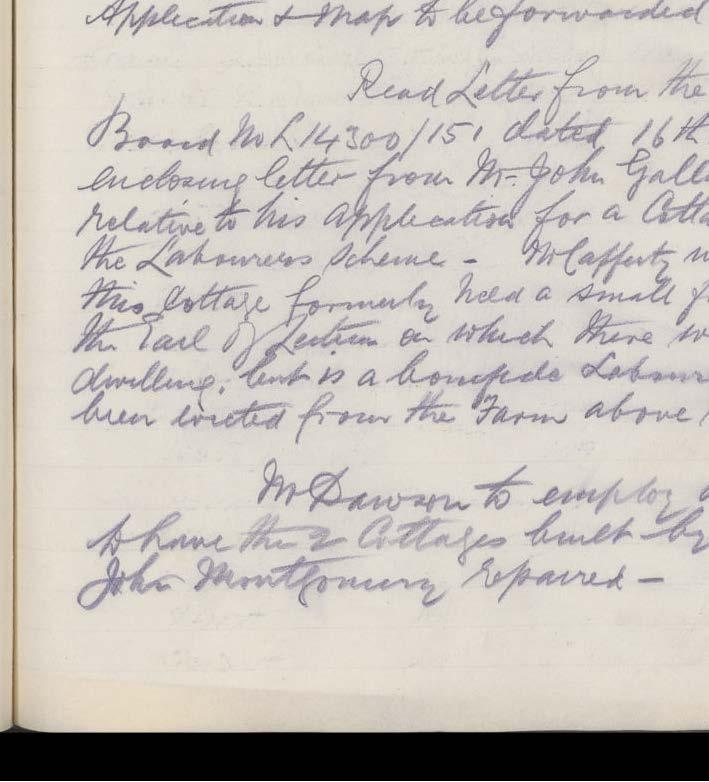 Application & Map to be forwarded
Read Letter from the
Board No L 14300/151 dated 16th
enclosing letter from Mr. John Gall
relative to his application for a Cotta
the Labourers Scheme -
this Cottage formerly held a small f
the Earl of Leitrim on which there w
dwelling; but is a bonafide Labour
been evicted from the Farm above
Mr Dawson to employ
to have the 2 Cottages built by
John Montgomery repaired -